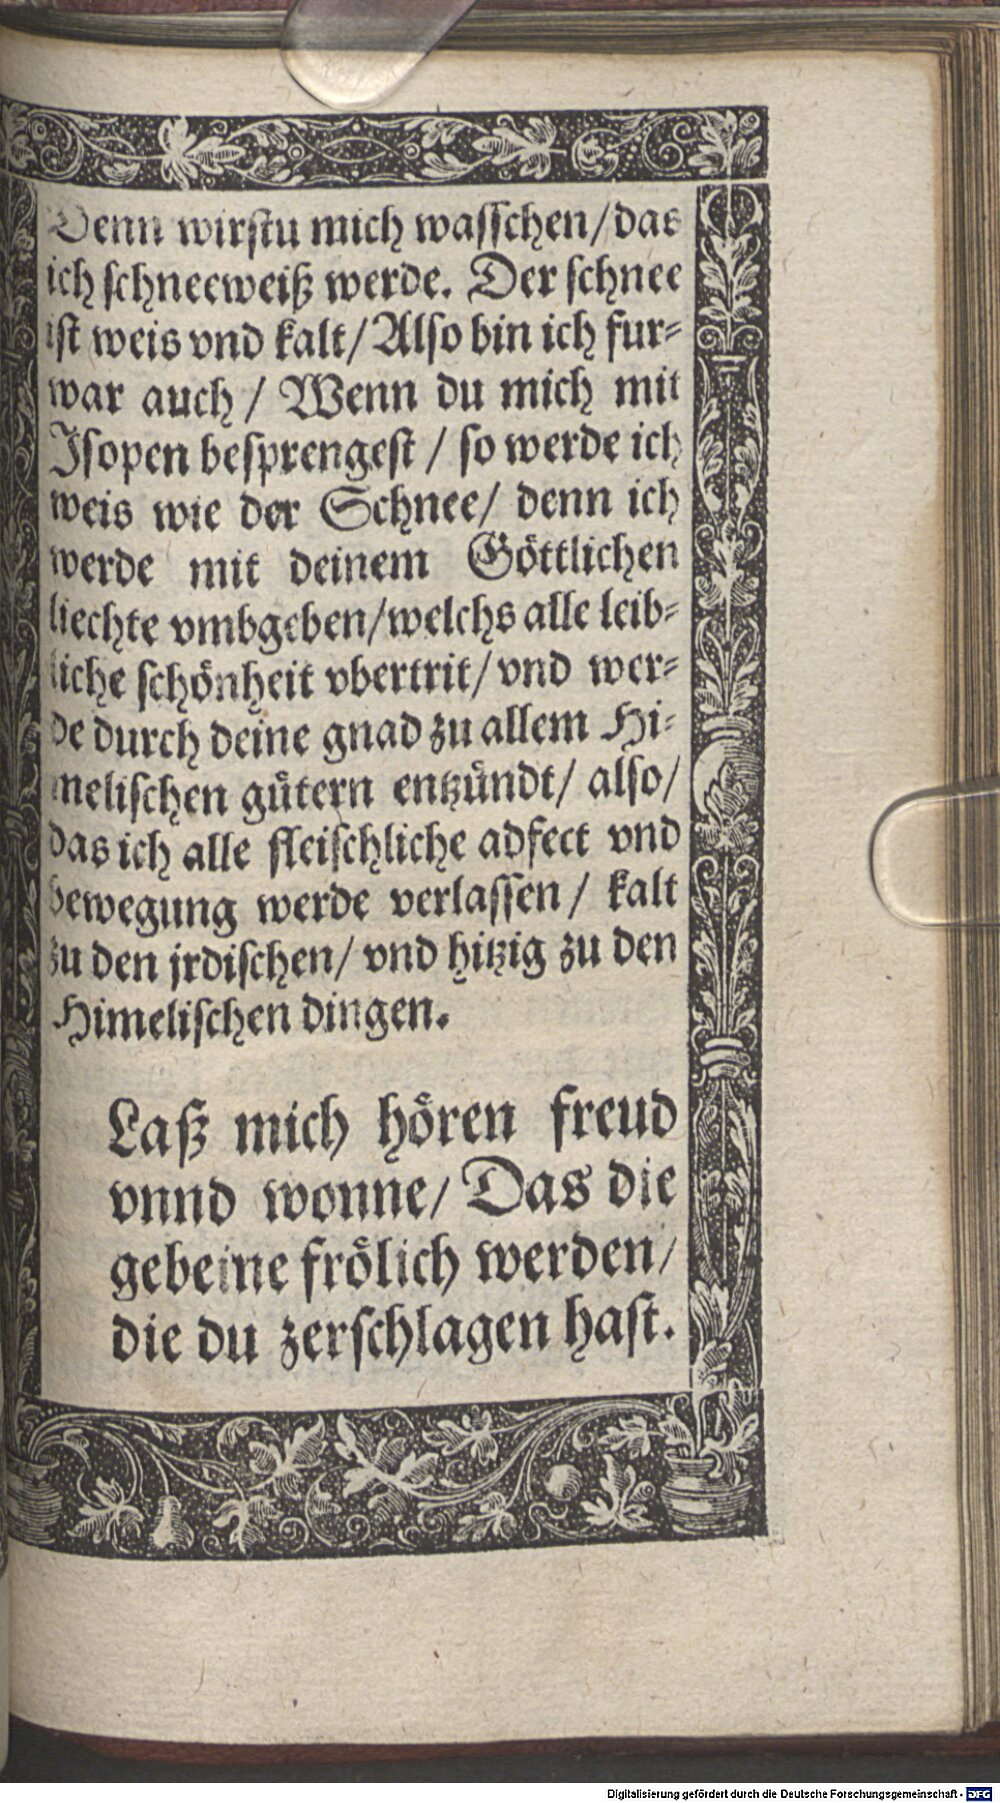 Denn wirstu mich wasschen/das
ich schneeweiß werde. Der schnee
ist weis vnd kalt/Also bin ich fur⸗
war auch/ Wenn du mich mit
Jsopen besprengest/ so werde ich
weis wie der Schnee/ denn ich
werde mit deinem Göttlichen
liechte vmbgeben/welchs alle leib⸗
liche schönheit vbertrit/vnd wer⸗
de durch deine gnad zu allem Hi⸗
melischen gütern entzündt/ also/
das ich alle fleischliche adfect vnd
bewegung werde verlassen/ kalt
zu den jrdischen/ vnd hitzig zu den
Himelischen dingen.
Laß mich hören freud
vnnd wonne/ Das die
gebeine frölich werden/
die du zerschlagen hast.
Digitalisierung gefördert durch die Deutsche Forschungsgemeinschaft - DFG